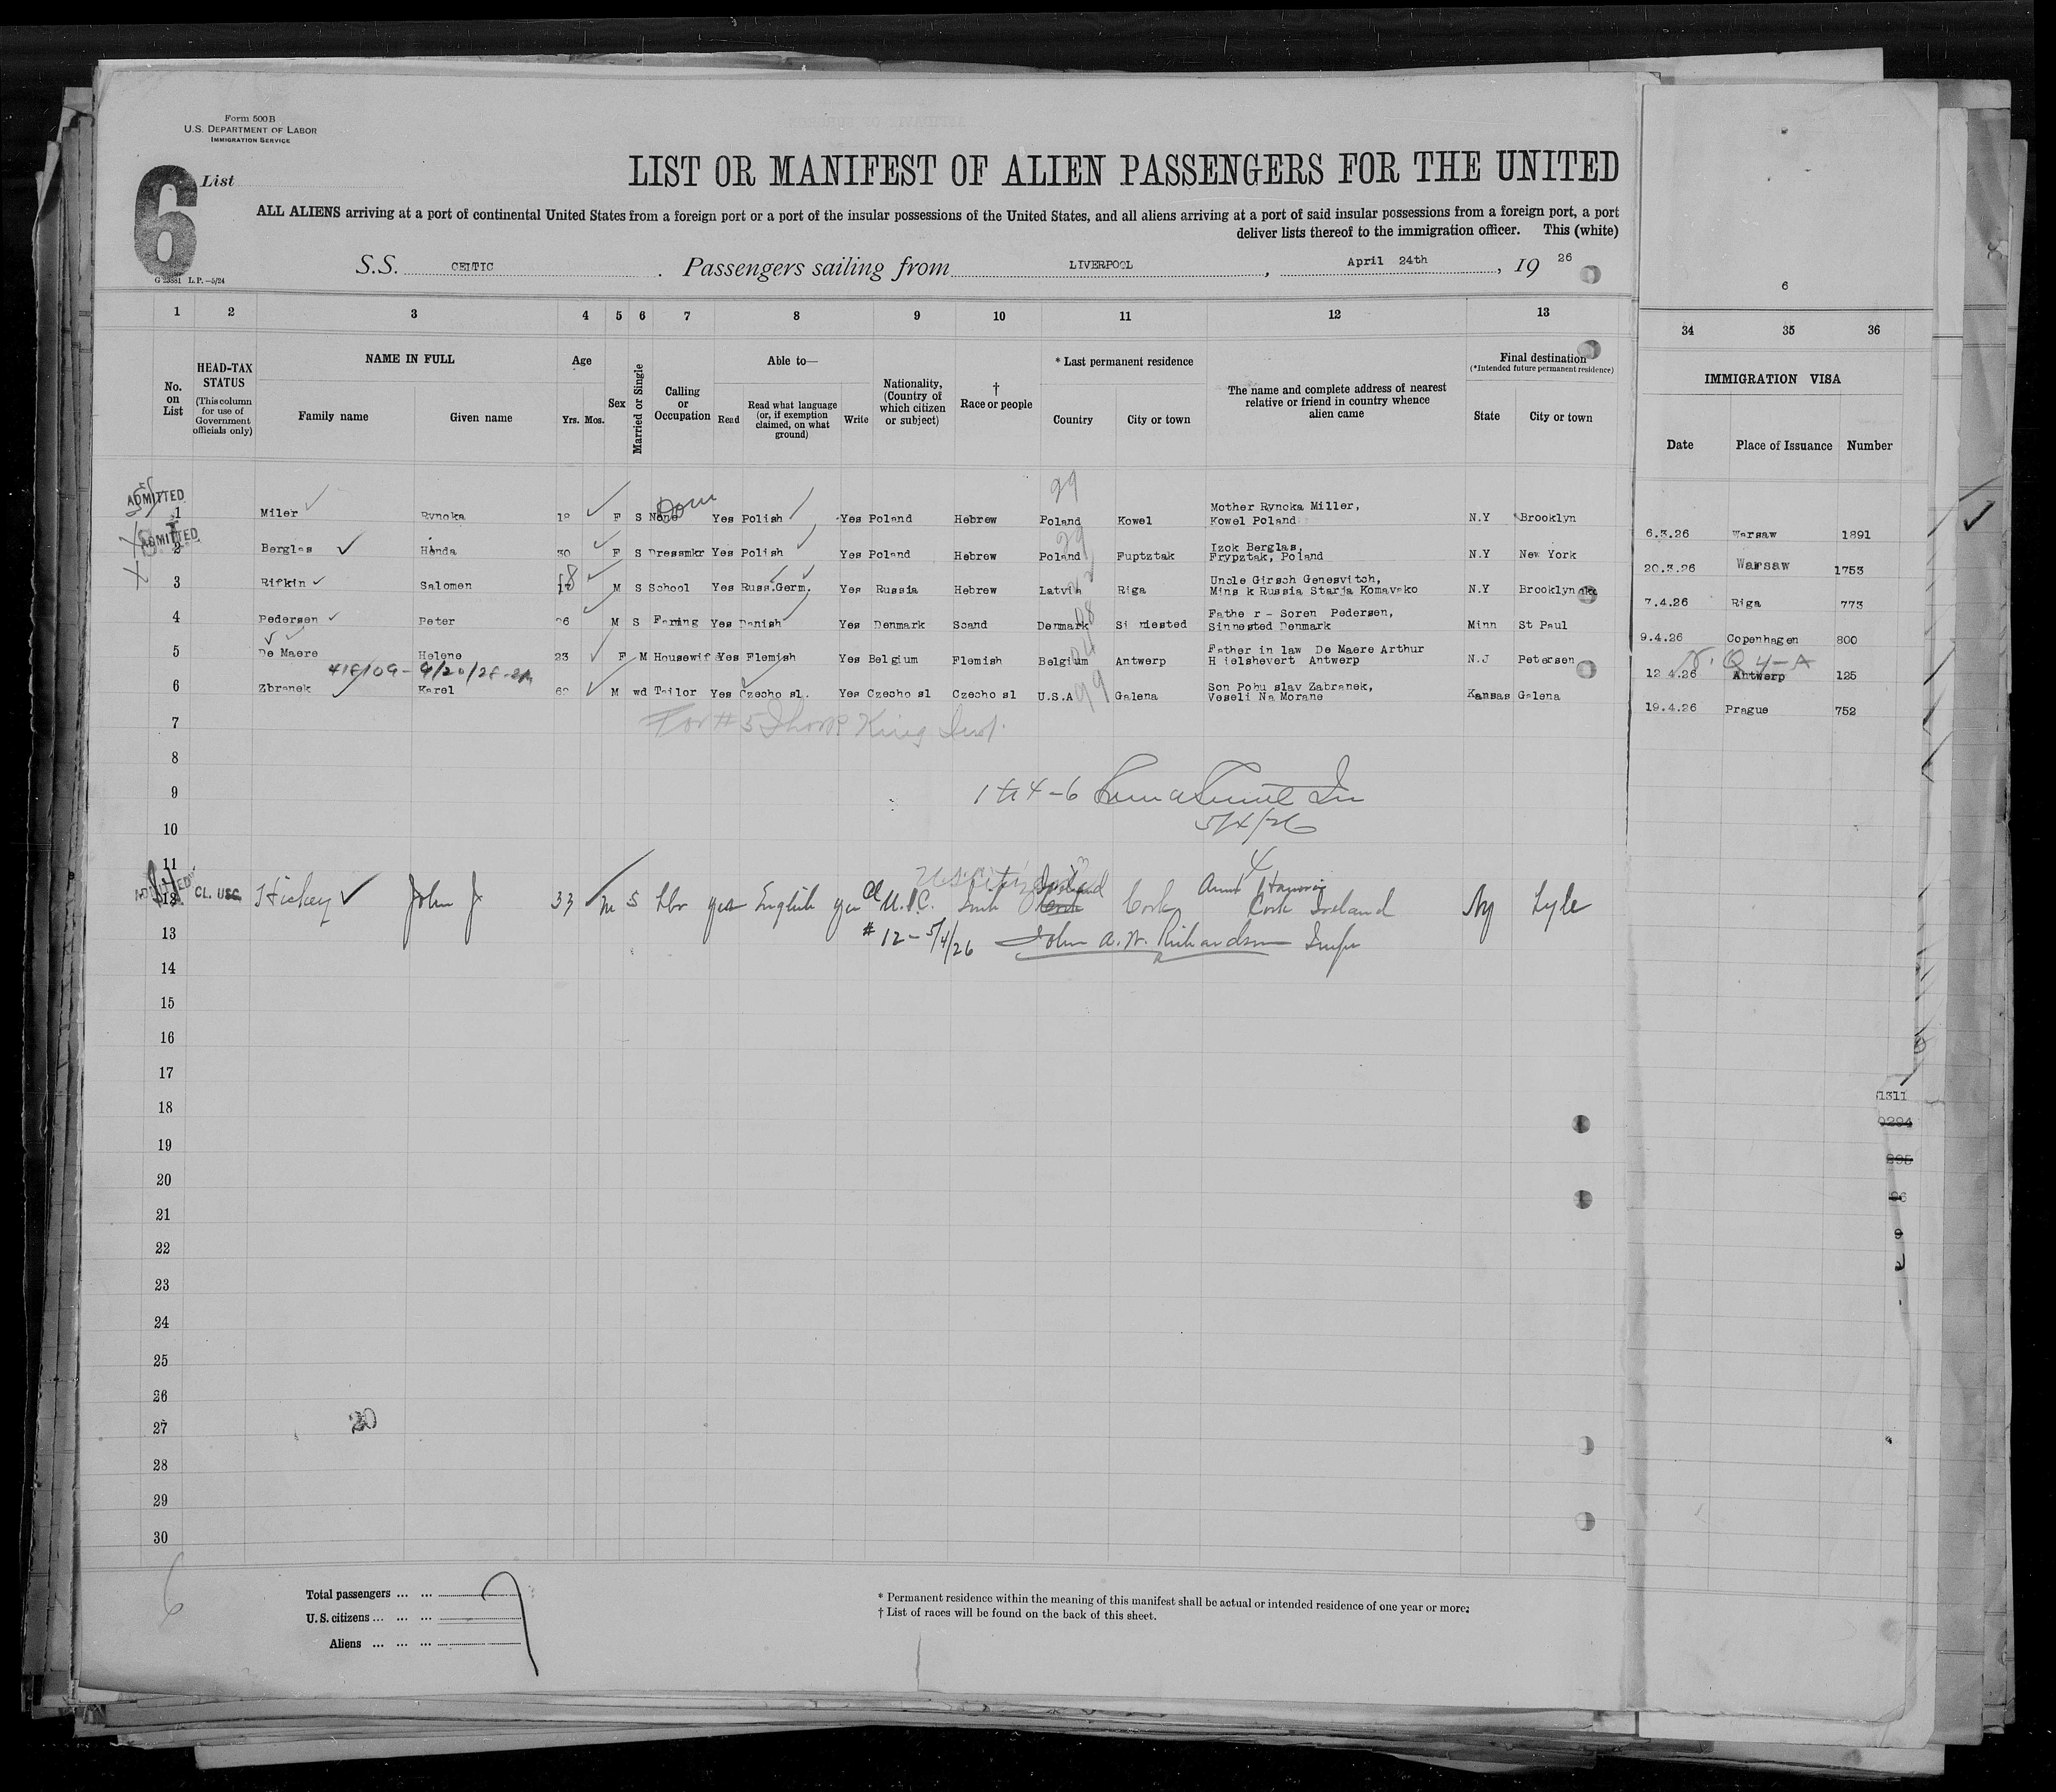 Form 500B
U.S. DEPARTMENT OF LABOR
IMMIGRATION SERVICE
6 List
LIST OR MANIFEST OF ALIEN PASSENGERS FOR THE UNITED
ALL ALIENS arriving at a port of continental United States from a foreign port or a port of the insular possessions of the United States, and all aliens arriving at a port of said insular possessions from a foreign port, a port
deliver lists thereof to the immigration officer. This (white)
S.S. CELTIC. Passengers sailing from LIVERPOOL, April 24th, 19 26
G 23881 L.P.—5/24
6
1 2 3 4 5 6 7 8 9 10 11 12 13 34 35 36
No. on List
HEAD-TAX STATUS (This column for use of Government officials only)
NAME IN FULL
Family name Given name
Age
Yrs. Mos.
Sex
Married or Single
Calling or Occupation
Able to—
Read
Read what language (or, if exemption claimed, on what ground)
Write
Nationality, (Country of which citizen or subject)
† Race or people
* Last permanent residence
Country City or town
The name and complete address of nearest relative or friend in country whence alien came
Final destination
(*Intended future permanent residence)
State City or town
IMMIGRATION VISA
Date Place of Issuance Number
29
ADMITTED
1 Miler Rynoka 18 F S None Dom Yes Polish Yes Poland Hebrew Poland Kowel Mother Rynoka Miller, Kowel Poland N.Y Brooklyn 6.3.26 Warsaw 1891
ADMITTED
2 Berglas Hinda 30 F S Dressmkr Yes Polish Yes Poland Hebrew Poland Fuptztak Izok Berglas, Frypztak, Poland N.Y New York 20.3.26 Warsaw 1753
3 Rifkin Salomen 18 M S School Yes Russ.Germ. Yes Russia Hebrew Latvia Riga Uncle Girsch Genesvitch, Mins k Russia Starja Komavsko N.Y Brooklyn 7.4.26 Riga 773
4 Pedersen Peter 26 M S Farming Yes Danish Yes Denmark Scand Denmark Si nested Fathe r - Soren Pedersen, Sinnested Denmark Minn St Paul 9.4.26 Copenhagen 800
5 De Maere Helene 23 F M Housewife Yes Flemish Yes Belgium Flemish Belgium Antwerp Father in law De Maere Arthur H ielshevert Antwerp N.J Petersen 12 4.26 Antwerp 125
N. Q 4-A
6 Zbranek Karel M wd Tailor Yes Czecho sl. Yes Czecho sl Czecho sl U.S.A Galena Son Pohu slav Zabranek, Veseli Na Morane Kansas Galena 19.4.26 Prague 752
7
8
9
1 to 4-6
5/4/26
10
11
ADMITTED
12 CL. USC Hickey John J 33 M S Lbr yes English yes U.S.C. Irish Ireland Cork Aunt Cork Ireland Ny Lyle
13
#12-5/4/26 John A. W. Richardson Inspr
14
15
16
17
18
1311
19
20
21
22
23
24
25
26
27
20
28
29
30
6
Total passengers ... ... 7
U.S. citizens ... ... ...
Aliens ... ... ...
* Permanent residence within the meaning of this manifest shall be actual or intended residence of one year or more.
† List of races will be found on the back of this sheet.